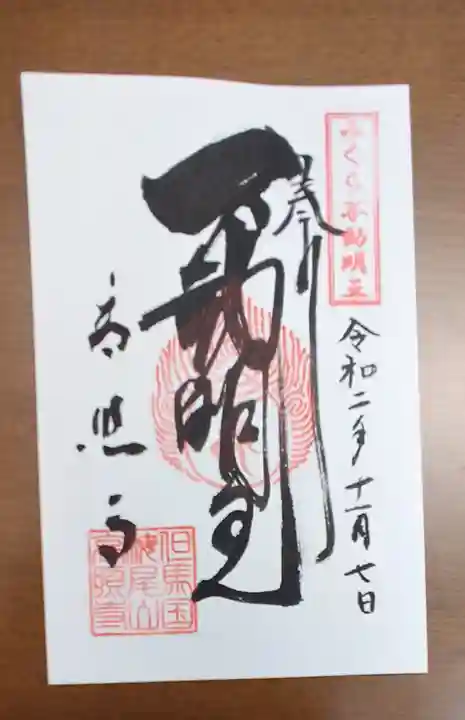 さくら不動明王
令和二年十一月七日
奉拝
不動明王
高照寺
但馬国
高照寺